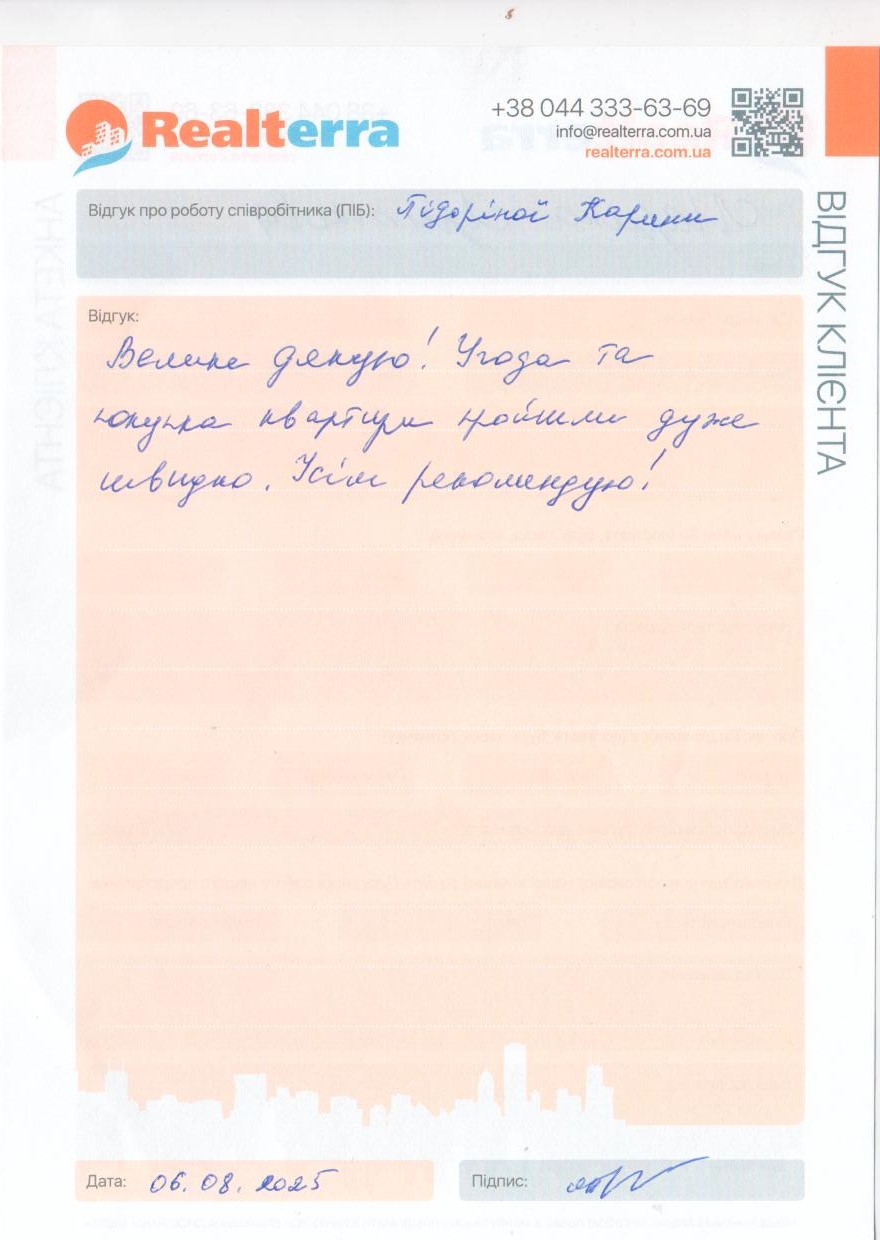 Realterra
+38 044 333-63-69
info@realterra.com.ua
realterra.com.ua
ВІДГУК КЛІЄНТА
Відгук про роботу співробітника (ПІБ): Карини
Відгук:
Велике дякую! Угода та
покупка квартири пройшли дуже
швидко. Усім рекомендую!
Дата: 06.08.2025
Підпис:
АНКЕТА КЛІЄНТА